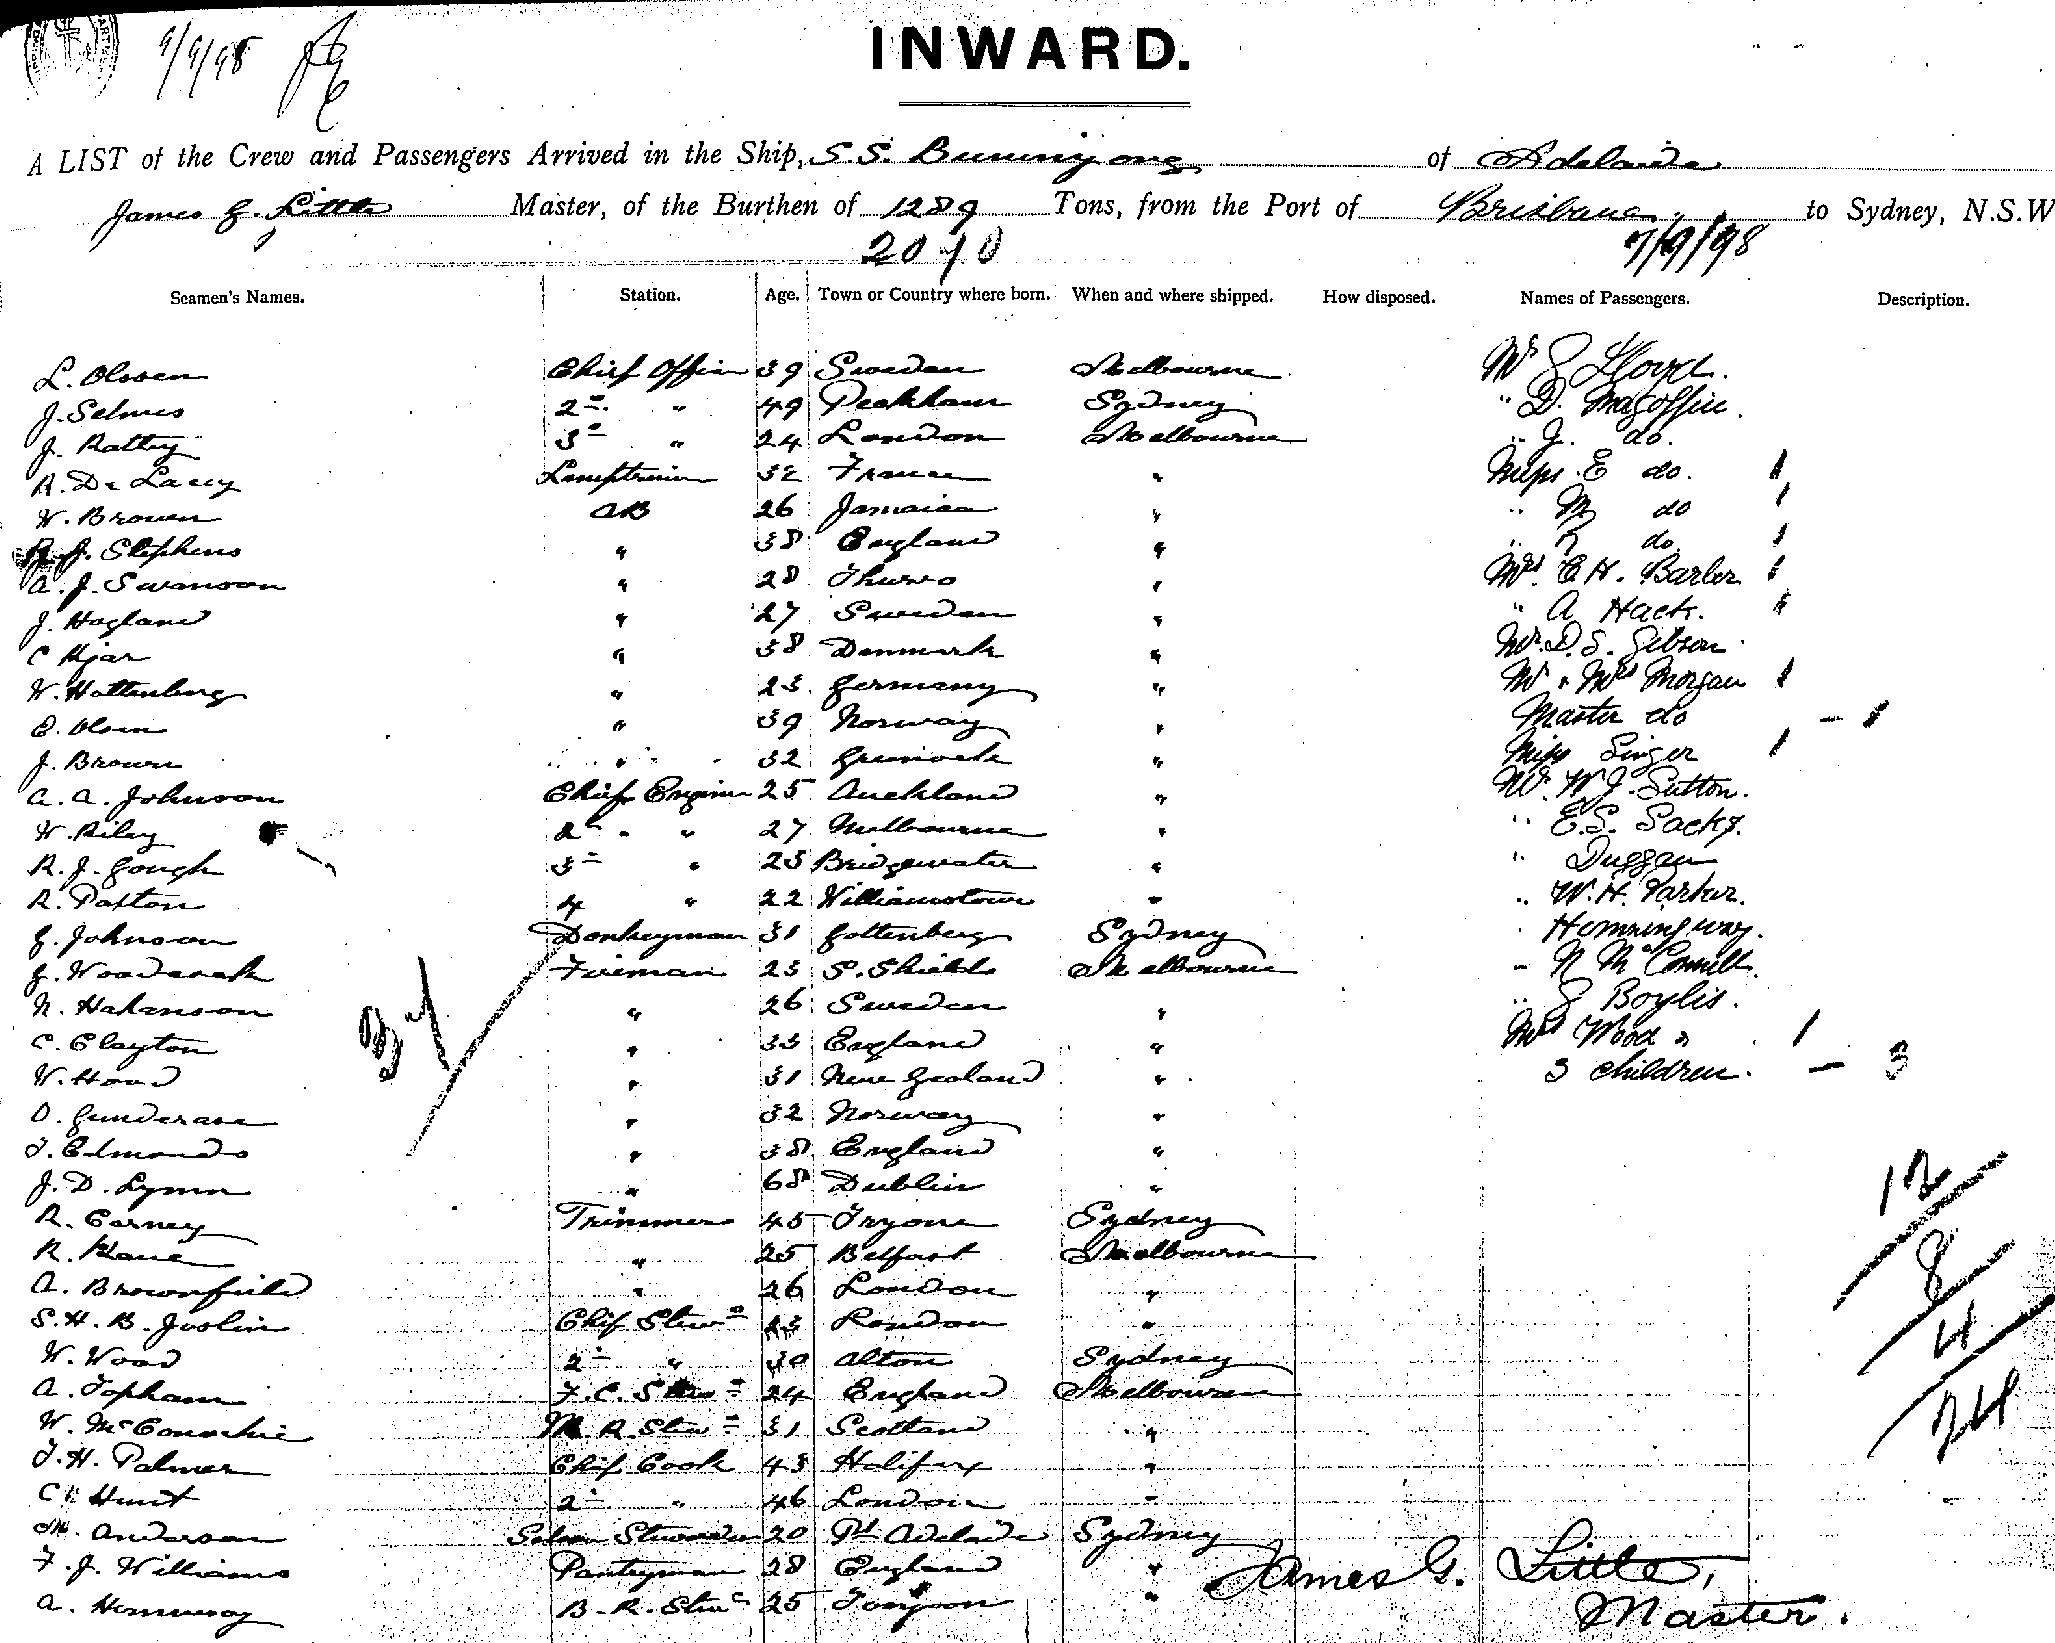 9/9/98
INWARD.
A LIST of the Crew and Passengers Arrived in the Ship, S.S. Buninyong of Adelaide
James G. Little Master, of the Burthen of 1289 Tons, from the Port of Brisbane to Sydney, N.S.W
2070 7/9/98
Seamen's Names. Station. Age. Town or Country where born. When and where shipped. How disposed. Names of Passengers. Description.
L. Olssen Chief Officer 39 Sweden Melbourne Mr G Lloyd.
J. Selmes 2nd " 49 Peckham Sydney " D. Magoffin.
J. Rattey 3d " 24 London Melbourne " J. do.
R. De Lacey Lamptrimmer 32 France " Miss E do. 1
W. Brown AB 26 Jamaica " " M do 1
J. Stephens " 38 England " " R do 1
A. J. Swanson " 28 Thurso " Mrs. E H. Barber 1
J. Hogland " 27 Sweden " " A Hack. 1
C Hjar " 38 Denmark " Mr. D. S. Gibson
W. Hottenberg " 23 Germany " Mr & Mrs Morgan 1
E. Olsen " 39 Norway " Master do - 1
J. Brown " 32 Greenock " Miss Singer 1
A. A. Johnson Chief Engineer 25 Auckland " Mr. W J. Sutton.
W. Riley 2d " 27 Melbourne " " E.S. Sachs.
R. J. Gough 3d " 23 Bridgewater " " Duggan
R. Paxton 4 " 22 Williamstown " " W. H. Parker.
G. Johnson Donkeyman 31 Gottenberg Sydney " Hemmingway.
J. Fireman 23 S. Shields Melbourne " N McConnell.
N. Hakanson " 26 Sweden " " G Boylis.
C. Clayton " 33 England " Mrs Wood & 1
W. Hood " 31 New Zealand " 3 children. - 3
O. " 32 Norway "
T. Edmonds " 38 England "
J. D. Lynn " 68 Dublin "
R. Carney Trimmer 45 Tryone Sydney
R. Kane " 25 Belfast Melbourne
A. Brownfield " 26 London "
S. H. B. Joslin Chief Stewd 23 London "
W. Wood 2d " 30 Alton Sydney
A. Topham F. C. Stewd 24 England Melbourne
W. McConochie M R. Stewd 31 Scotland "
T. H. Palmer Chief Cook 43 Halifax "
C Hunt 2d " 46 London "
M. Anderson Saloon Stewardess 20 Pt Adelaide Sydney
F. J. Williams Pantryman 28 England "
A. Hemmway B. R. Stewd 25 "
37
12
8
4
24
James G. Little,
Master.